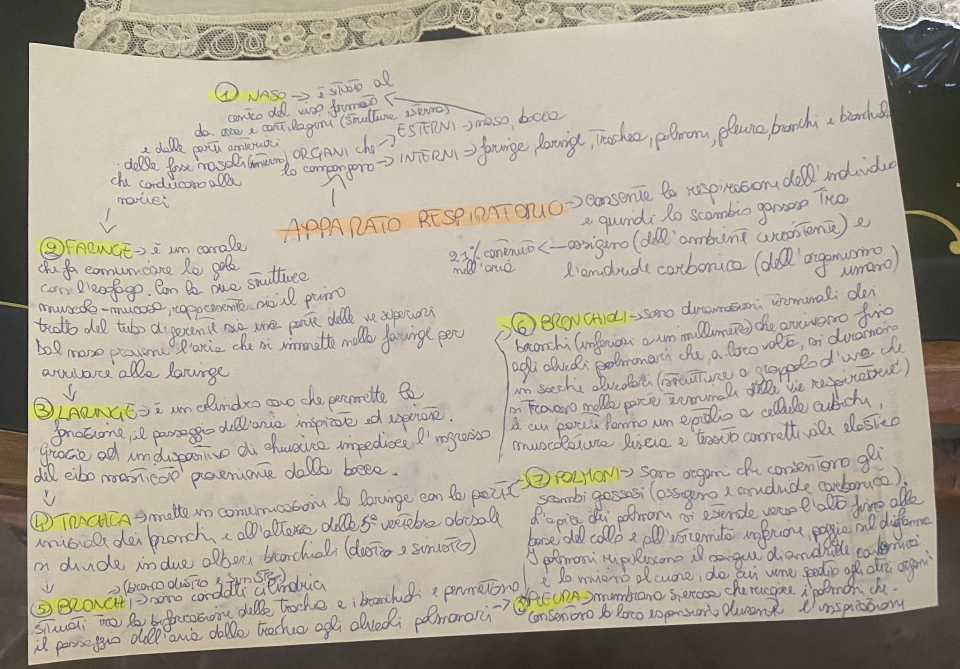 ① NASO → è situato al
centro del viso formato
da ossa e cartilagini (strutture esterne)
e dalle parti anteriori
delle fosse nasali (interne)
che conducono alle
narici
ORGANI che → ESTERNI → naso, bocca
lo compongono → INTERNI → faringe, laringe, trachea, polmoni, pleura, bronchi e bronchioli
APPARATO RESPIRATORIO → consente la respirazione dell'individuo
e quindi lo scambio gassoso tra
21% contenuto ← ossigeno (dell'ambiente circostante) e
nell'aria
l'anidride carbonica (dell'organismo
umano)
② FARINGE → è un canale
che fa comunicare la gola
con l'esofago. Con la sua struttura
muscolo-mucosa, rappresenta sia il primo
tratto del tubo digerente sia una parte delle vie superiori
Dal naso proviene l'aria che si immette nella faringe per
arrivare alla laringe
③ LARINGE → è un cilindro cavo che permette la
fonazione, il passaggio dell'aria inspirata ed espirata.
Grazie ad un dispositivo di chiusura impedisce l'ingresso
del cibo masticato proveniente dalla bocca.
④ TRACHEA → mette in comunicazione la laringe con la parte
iniziale dei bronchi e all'altezza della 5ª vertebra dorsale
si divide in due alberi bronchiali (destro e sinistro)
→ (bronco destro e sinistro)
⑤ BRONCHI → sono condotti cilindrici
situati tra la biforcazione della trachea e i bronchioli e permettono
il passaggio dell'aria dalla trachea agli alveoli polmonari →
⑥ BRONCHIOLI → sono diramazioni terminali dei
bronchi (inferiori a un millimetro) che arrivano fino
agli alveoli polmonari che, a loro volta, si diramano
in sacche alveolari (strutture a grappolo d'uva che
si trovano nella parte terminale delle vie respiratorie)
le cui pareti hanno un epitelio a cellule cubiche,
muscolatura liscia e tessuto connettivale elastico
⑦ POLMONI → sono organi che consentono gli
scambi gassosi (ossigeno e anidride carbonica).
L'apice dei polmoni si estende verso l'alto fino alla
base del collo e all'estremità inferiore, poggia sul diaframma
I polmoni ripuliscono il sangue di anidride carbonica
e lo inviano al cuore, da cui viene spedito agli altri organi
⑧ PLEURA → membrana sierosa che ricopre i polmoni che
consentono la loro espansione durante l'inspirazione